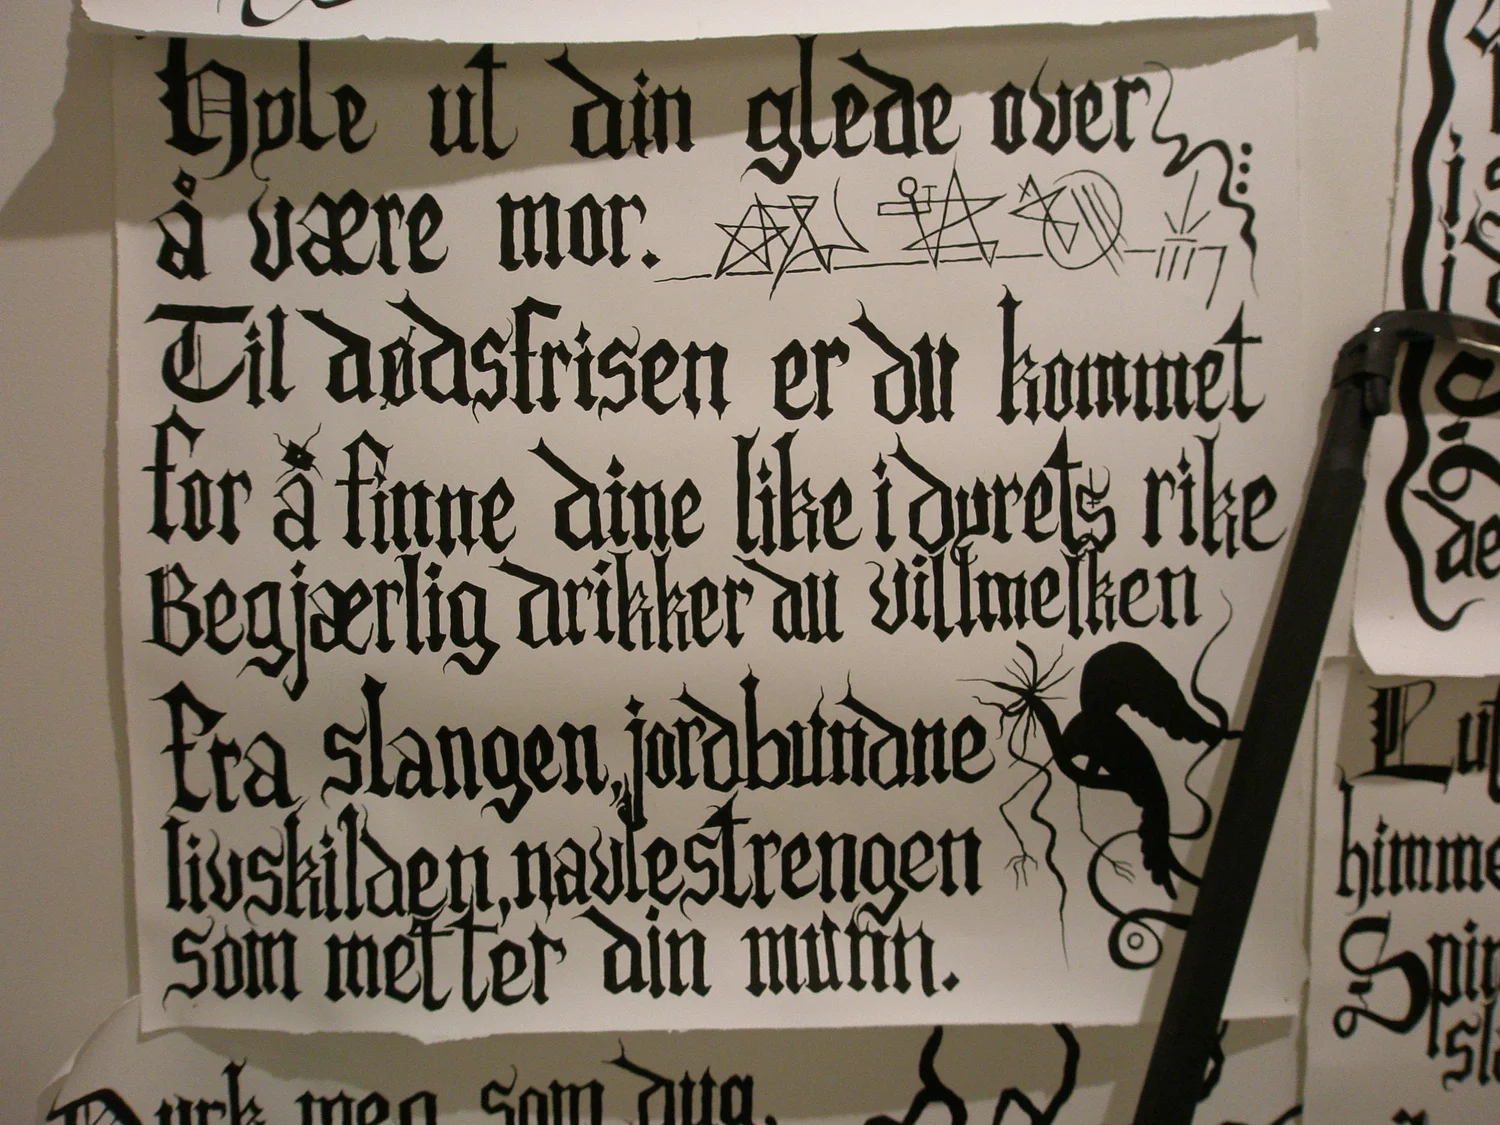 Hyle ut din glede over
å være mor.
Til dødsfrisen er du kommet
for å finne dine like i dyrets rike
Begjærlig drikker du villmelken
fra slangen, jordbundne
livskilden, navlestrengen
som metter din munn.
Dyrk meg som dug,
himme
Spir